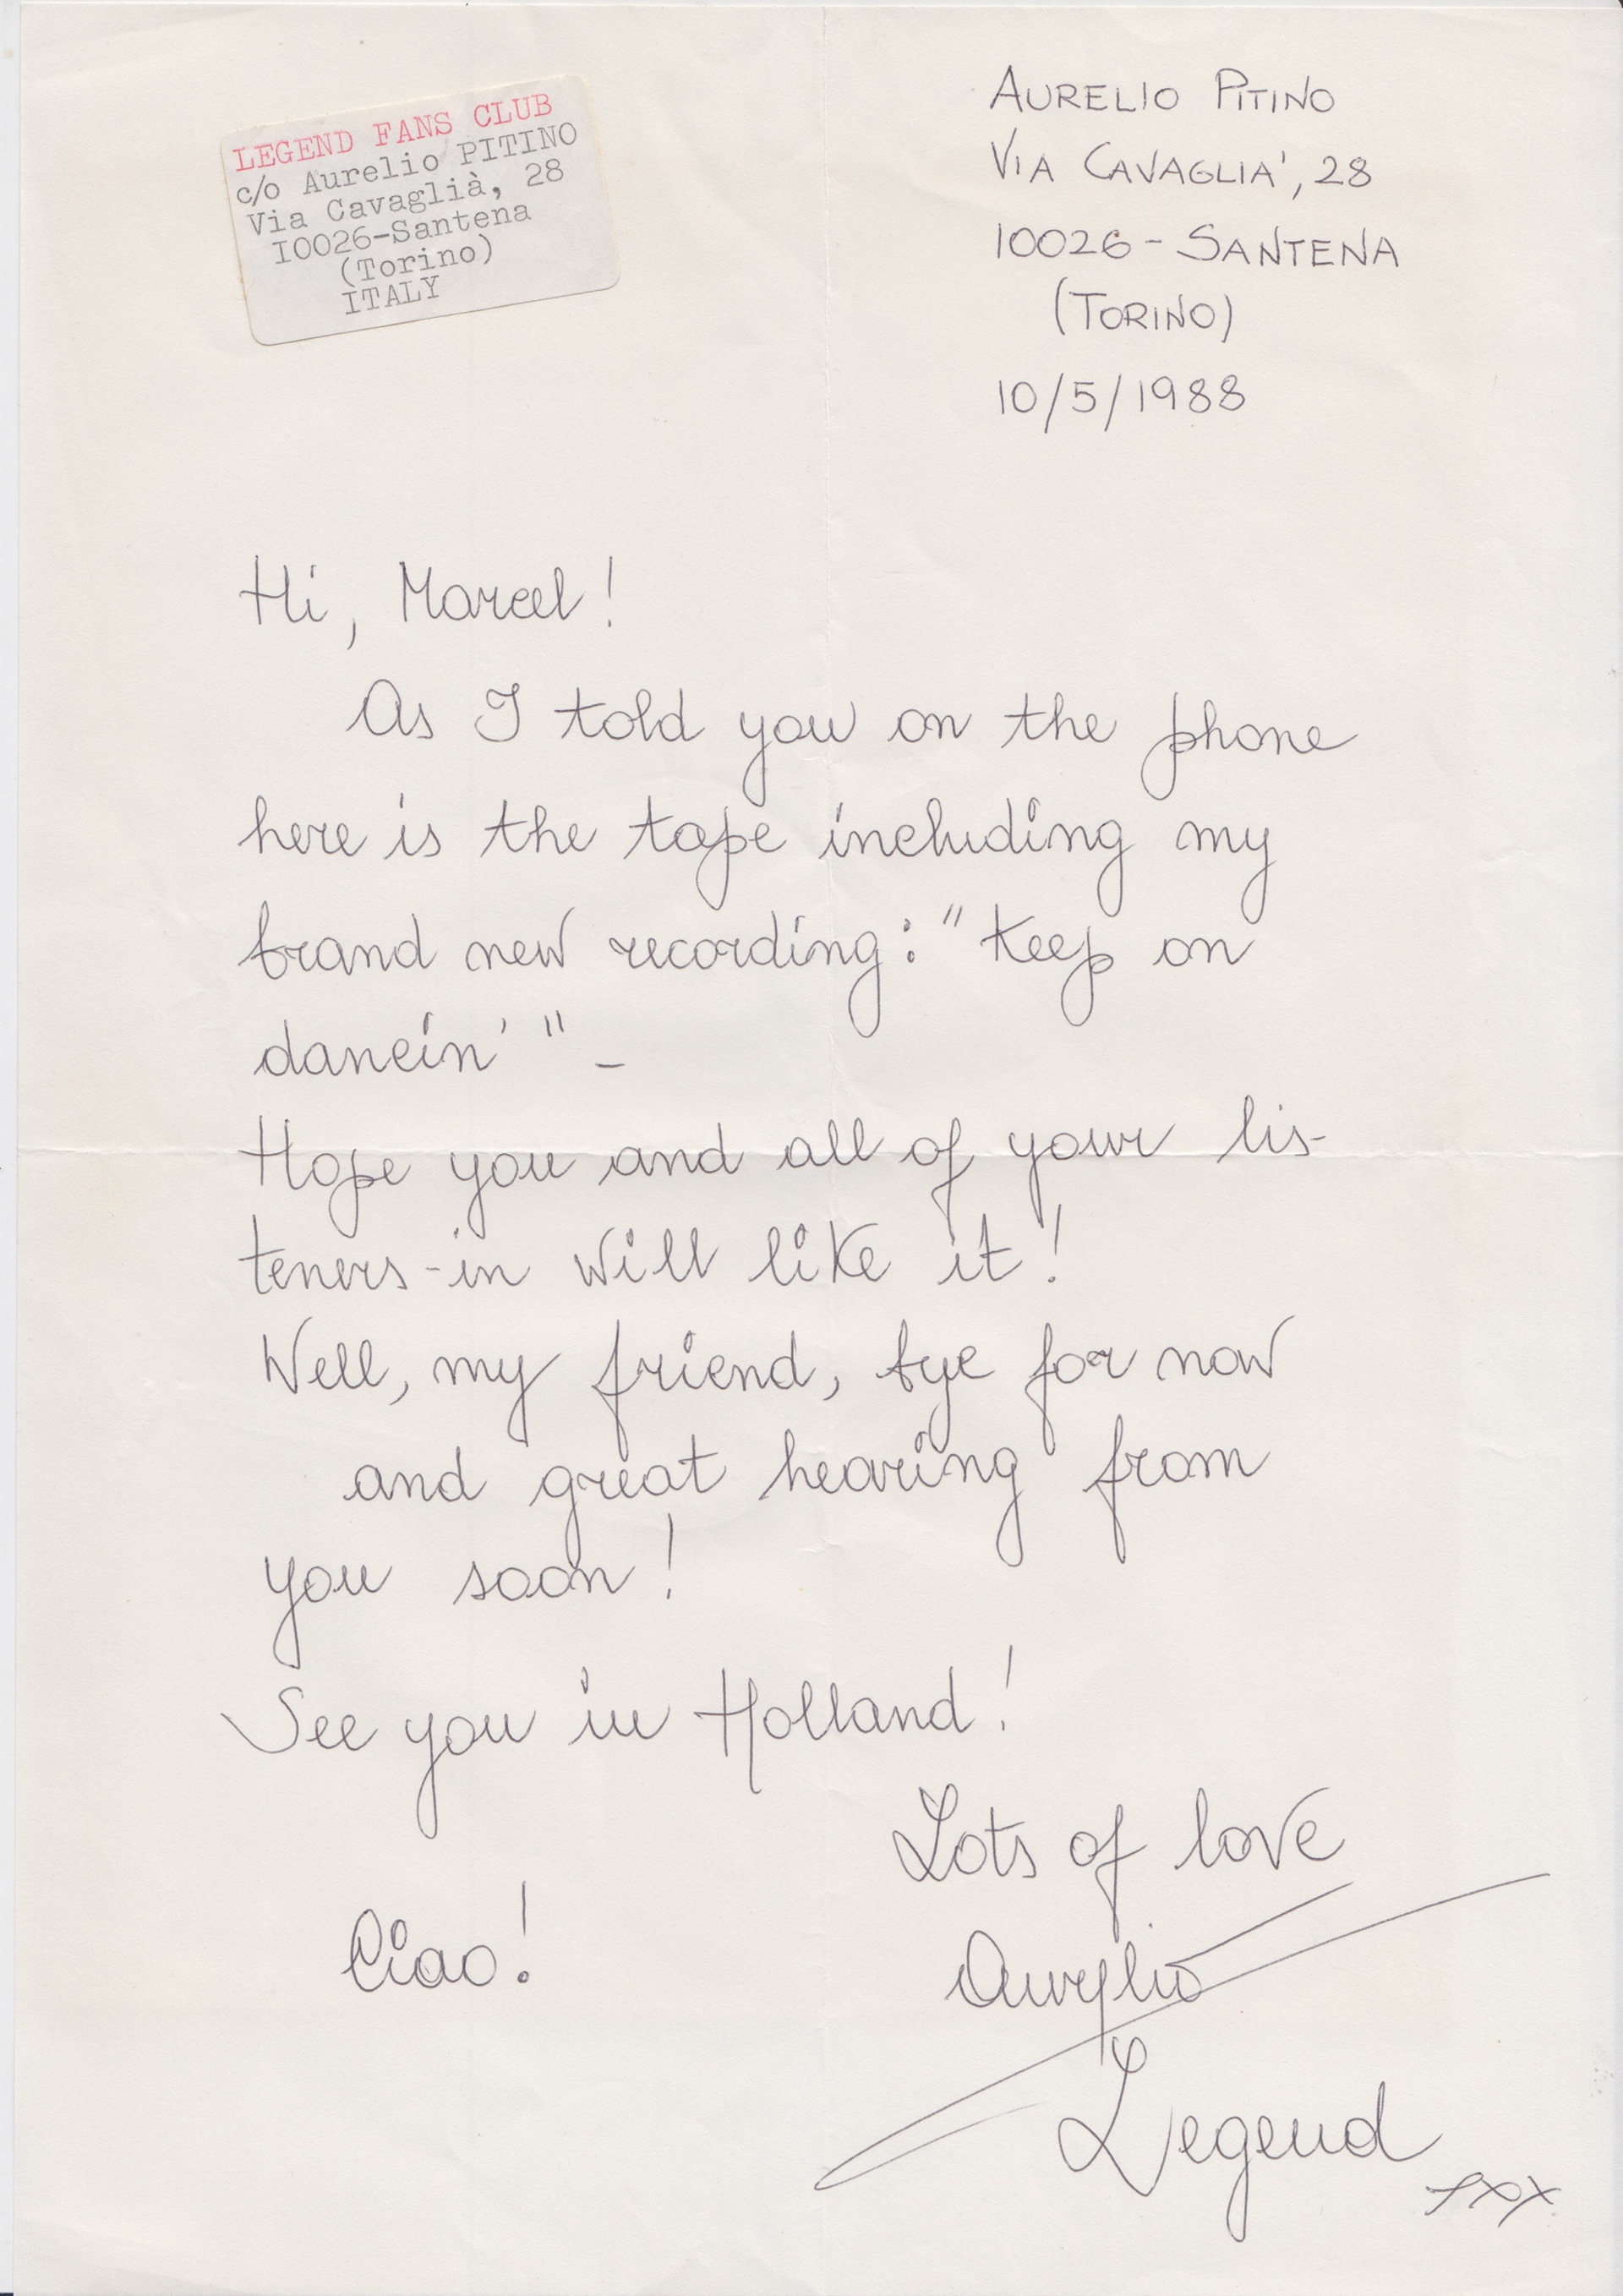 LEGEND FANS CLUB
c/o Aurelio PITINO
Via Cavaglià, 28
I0026-Santena
(Torino)
ITALY
AURELIO PITINO
VIA CAVAGLIA', 28
10026 - SANTENA
(TORINO)
10/5/1988
Hi, Marcel!
As I told you on the phone
here is the tape including my
brand new recording: "Keep on
dancin' " -
Hope you and all of your lis-
teners-in will like it!
Well, my friend, bye for now
and great hearing from
you soon!
See you in Holland!
Lots of love
Ciao!
Aurelio
Legend
xxx